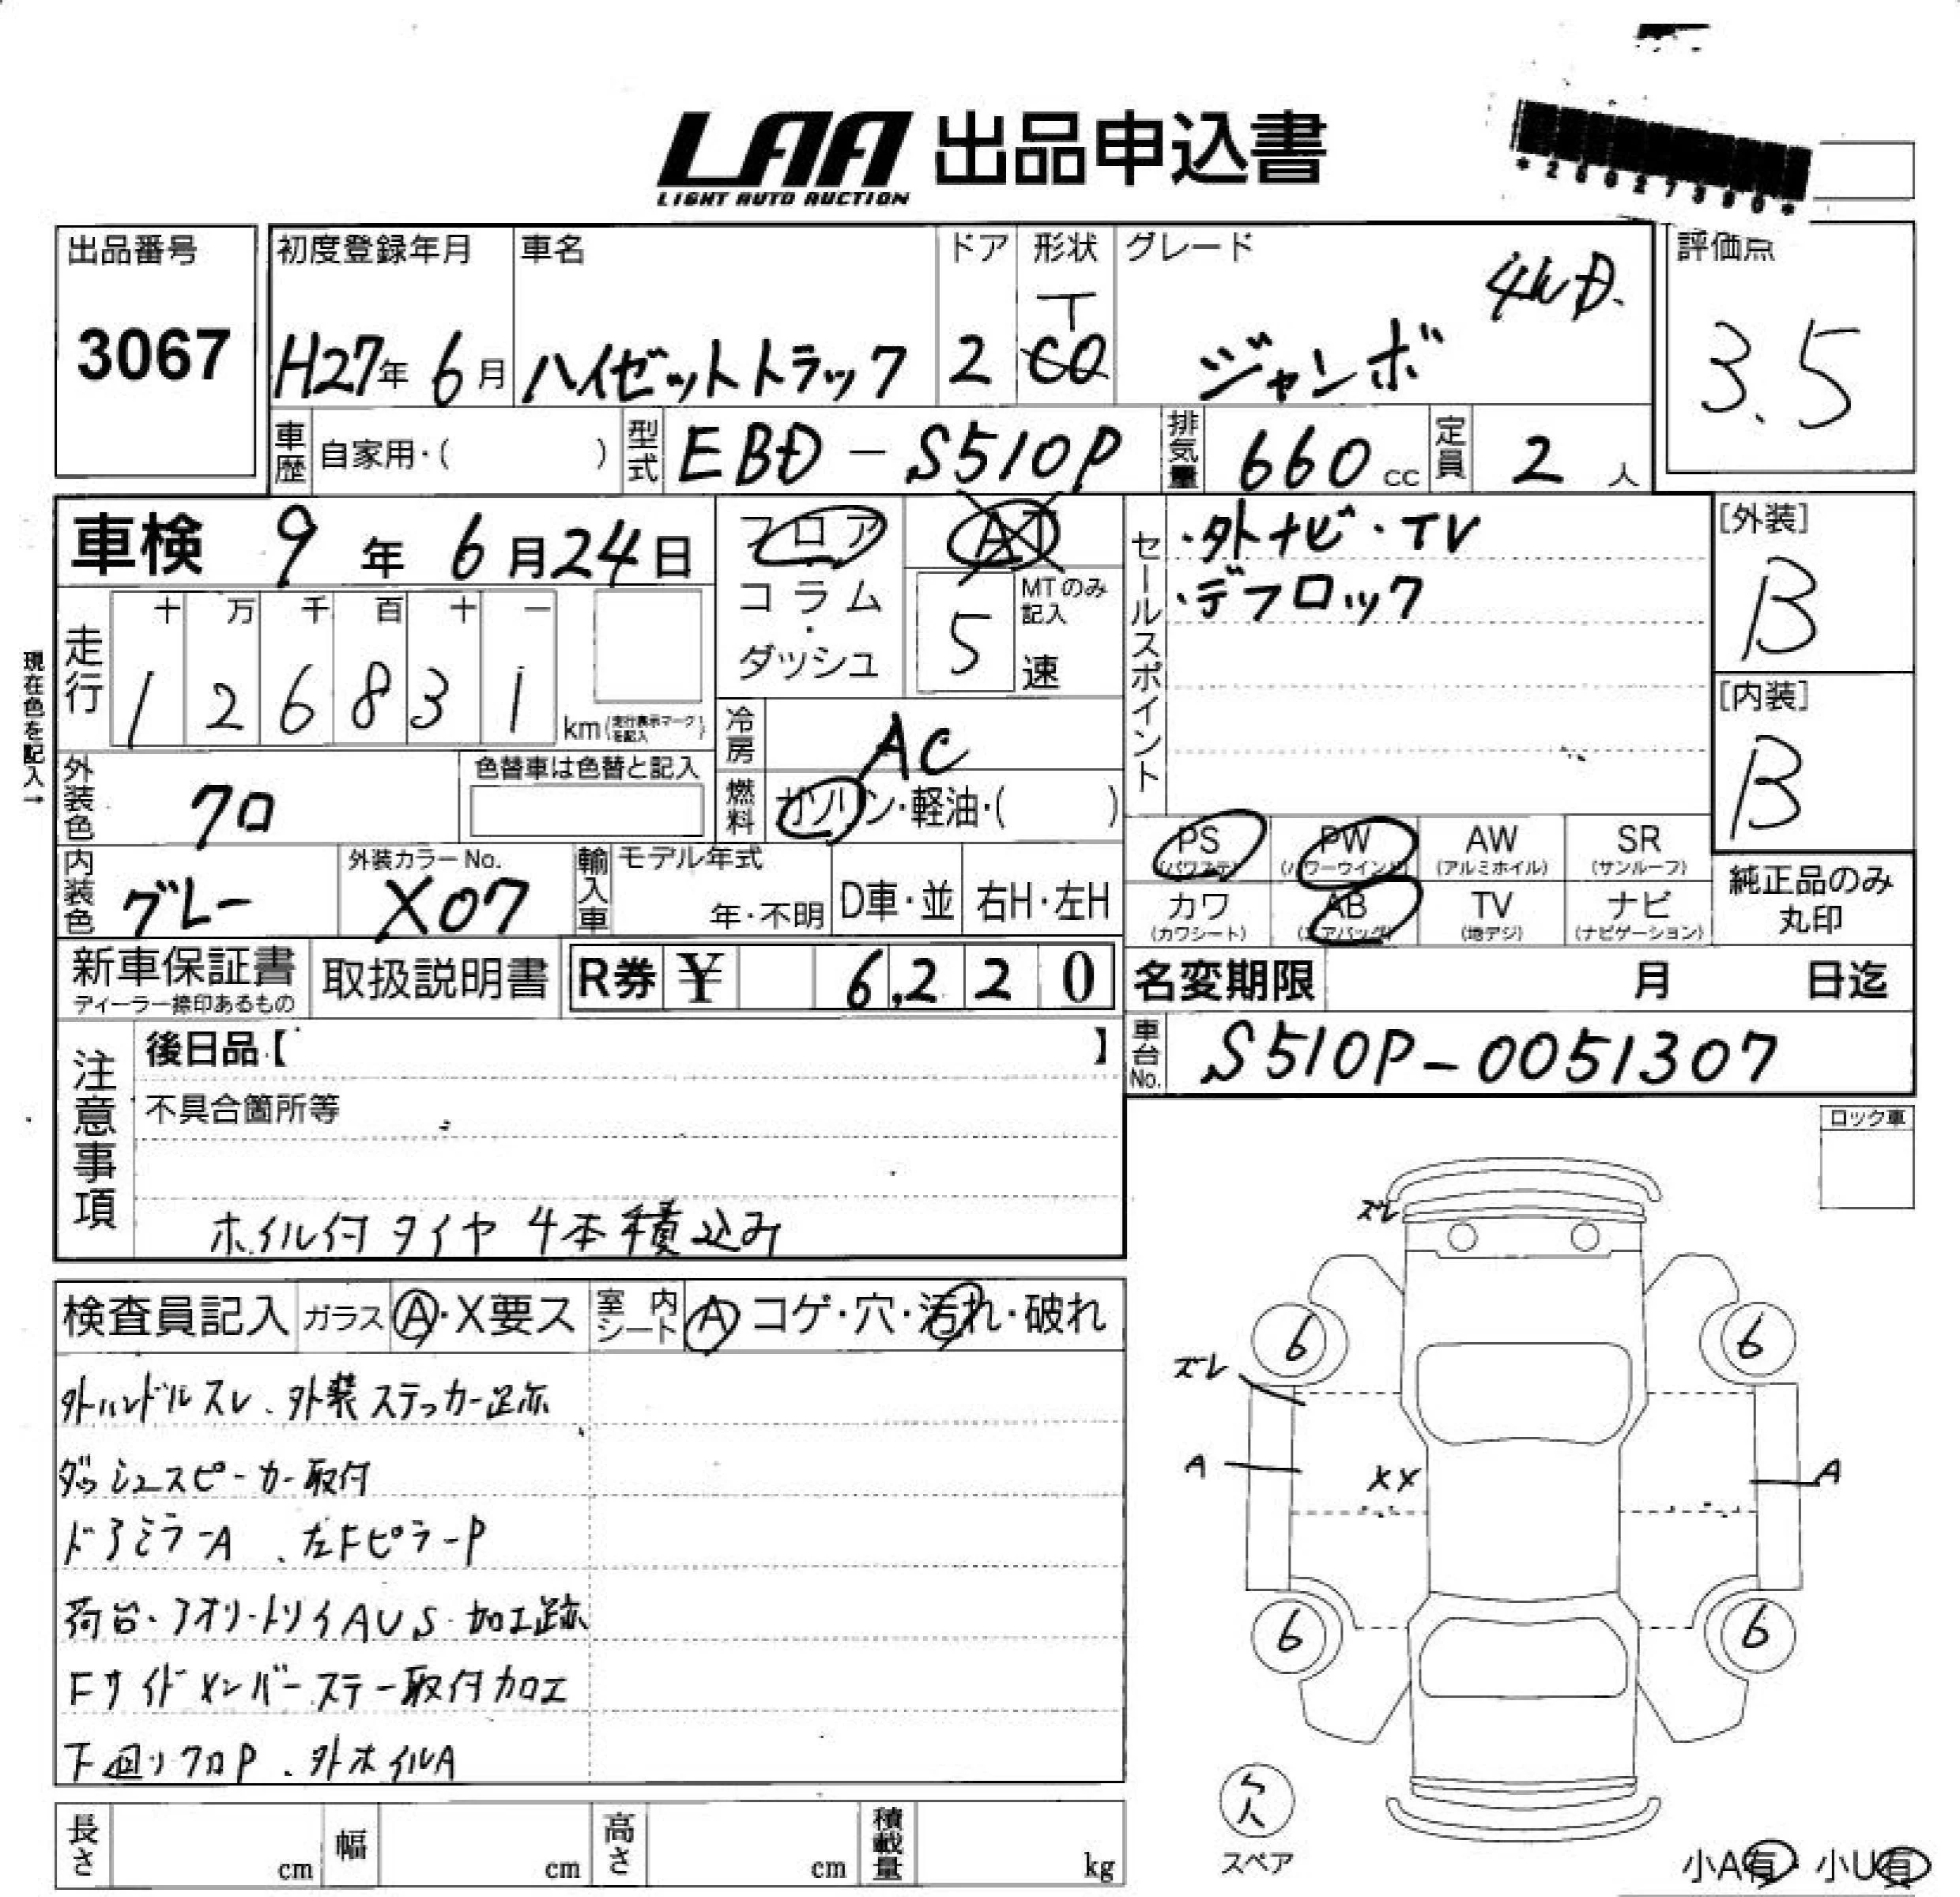 LAA 出品申込書
LIGHT AUTO AUCTION
出品番号
3067
初度登録年月
H27年 6月
車名
ハイゼットトラック
ドア
2
形状
T
グレード
4WD.
ジャンボ
評価点
3.5
車歴 自家用・( )
型式 EBD-S510P
排気量 660 cc
定員 2 人
車検 9年 6月24日
フロア
コラム
・
ダッシュ
AT
5 速
MTのみ記入
セールスポイント
・外ナビ・TV
・デフロック
[外装]
B
[内装]
B
現在色を記入→
走行
十 万 千 百 十 一
1 2 6 8 3 1 km(走行表示マークを記入)
冷房 AC
燃料 ガソリン・軽油・( )
外装色 クロ
色替車は色替と記入
内装色 グレー
外装カラーNo.
X07
輸入車 モデル年式
年・不明 D車・並 右H・左H
PS (パワステ)
PW (パワーウインド)
AW (アルミホイル)
SR (サンルーフ)
カワ (カワシート)
AB (エアバッグ)
TV (地デジ)
ナビ (ナビゲーション)
純正品のみ
丸印
新車保証書
ディーラー捺印あるもの
取扱説明書
R券 ¥ 6,220
名変期限 月 日迄
車台No. S510P-0051307
注意事項
後日品【 】
不具合箇所等
ホイル付タイヤ4本積込み
ロック車
検査員記入 ガラス A・X要ス 室内シート A コゲ・穴・汚れ・破れ
外ハンドルスレ、外装ステッカー足跡
ダッシュスピーカー取付
ドアミラーA、左Fピラーp
荷台・アオリ・トリイAUS・加工跡
Fサイドメンバーステー取付加工
下回りクロP、外ホイルA
ズレ
6
6
ズレ
A
XX
A
6
6
欠
スペア
長さ cm 幅 cm 高さ cm 積載量 kg
小A有・小U有